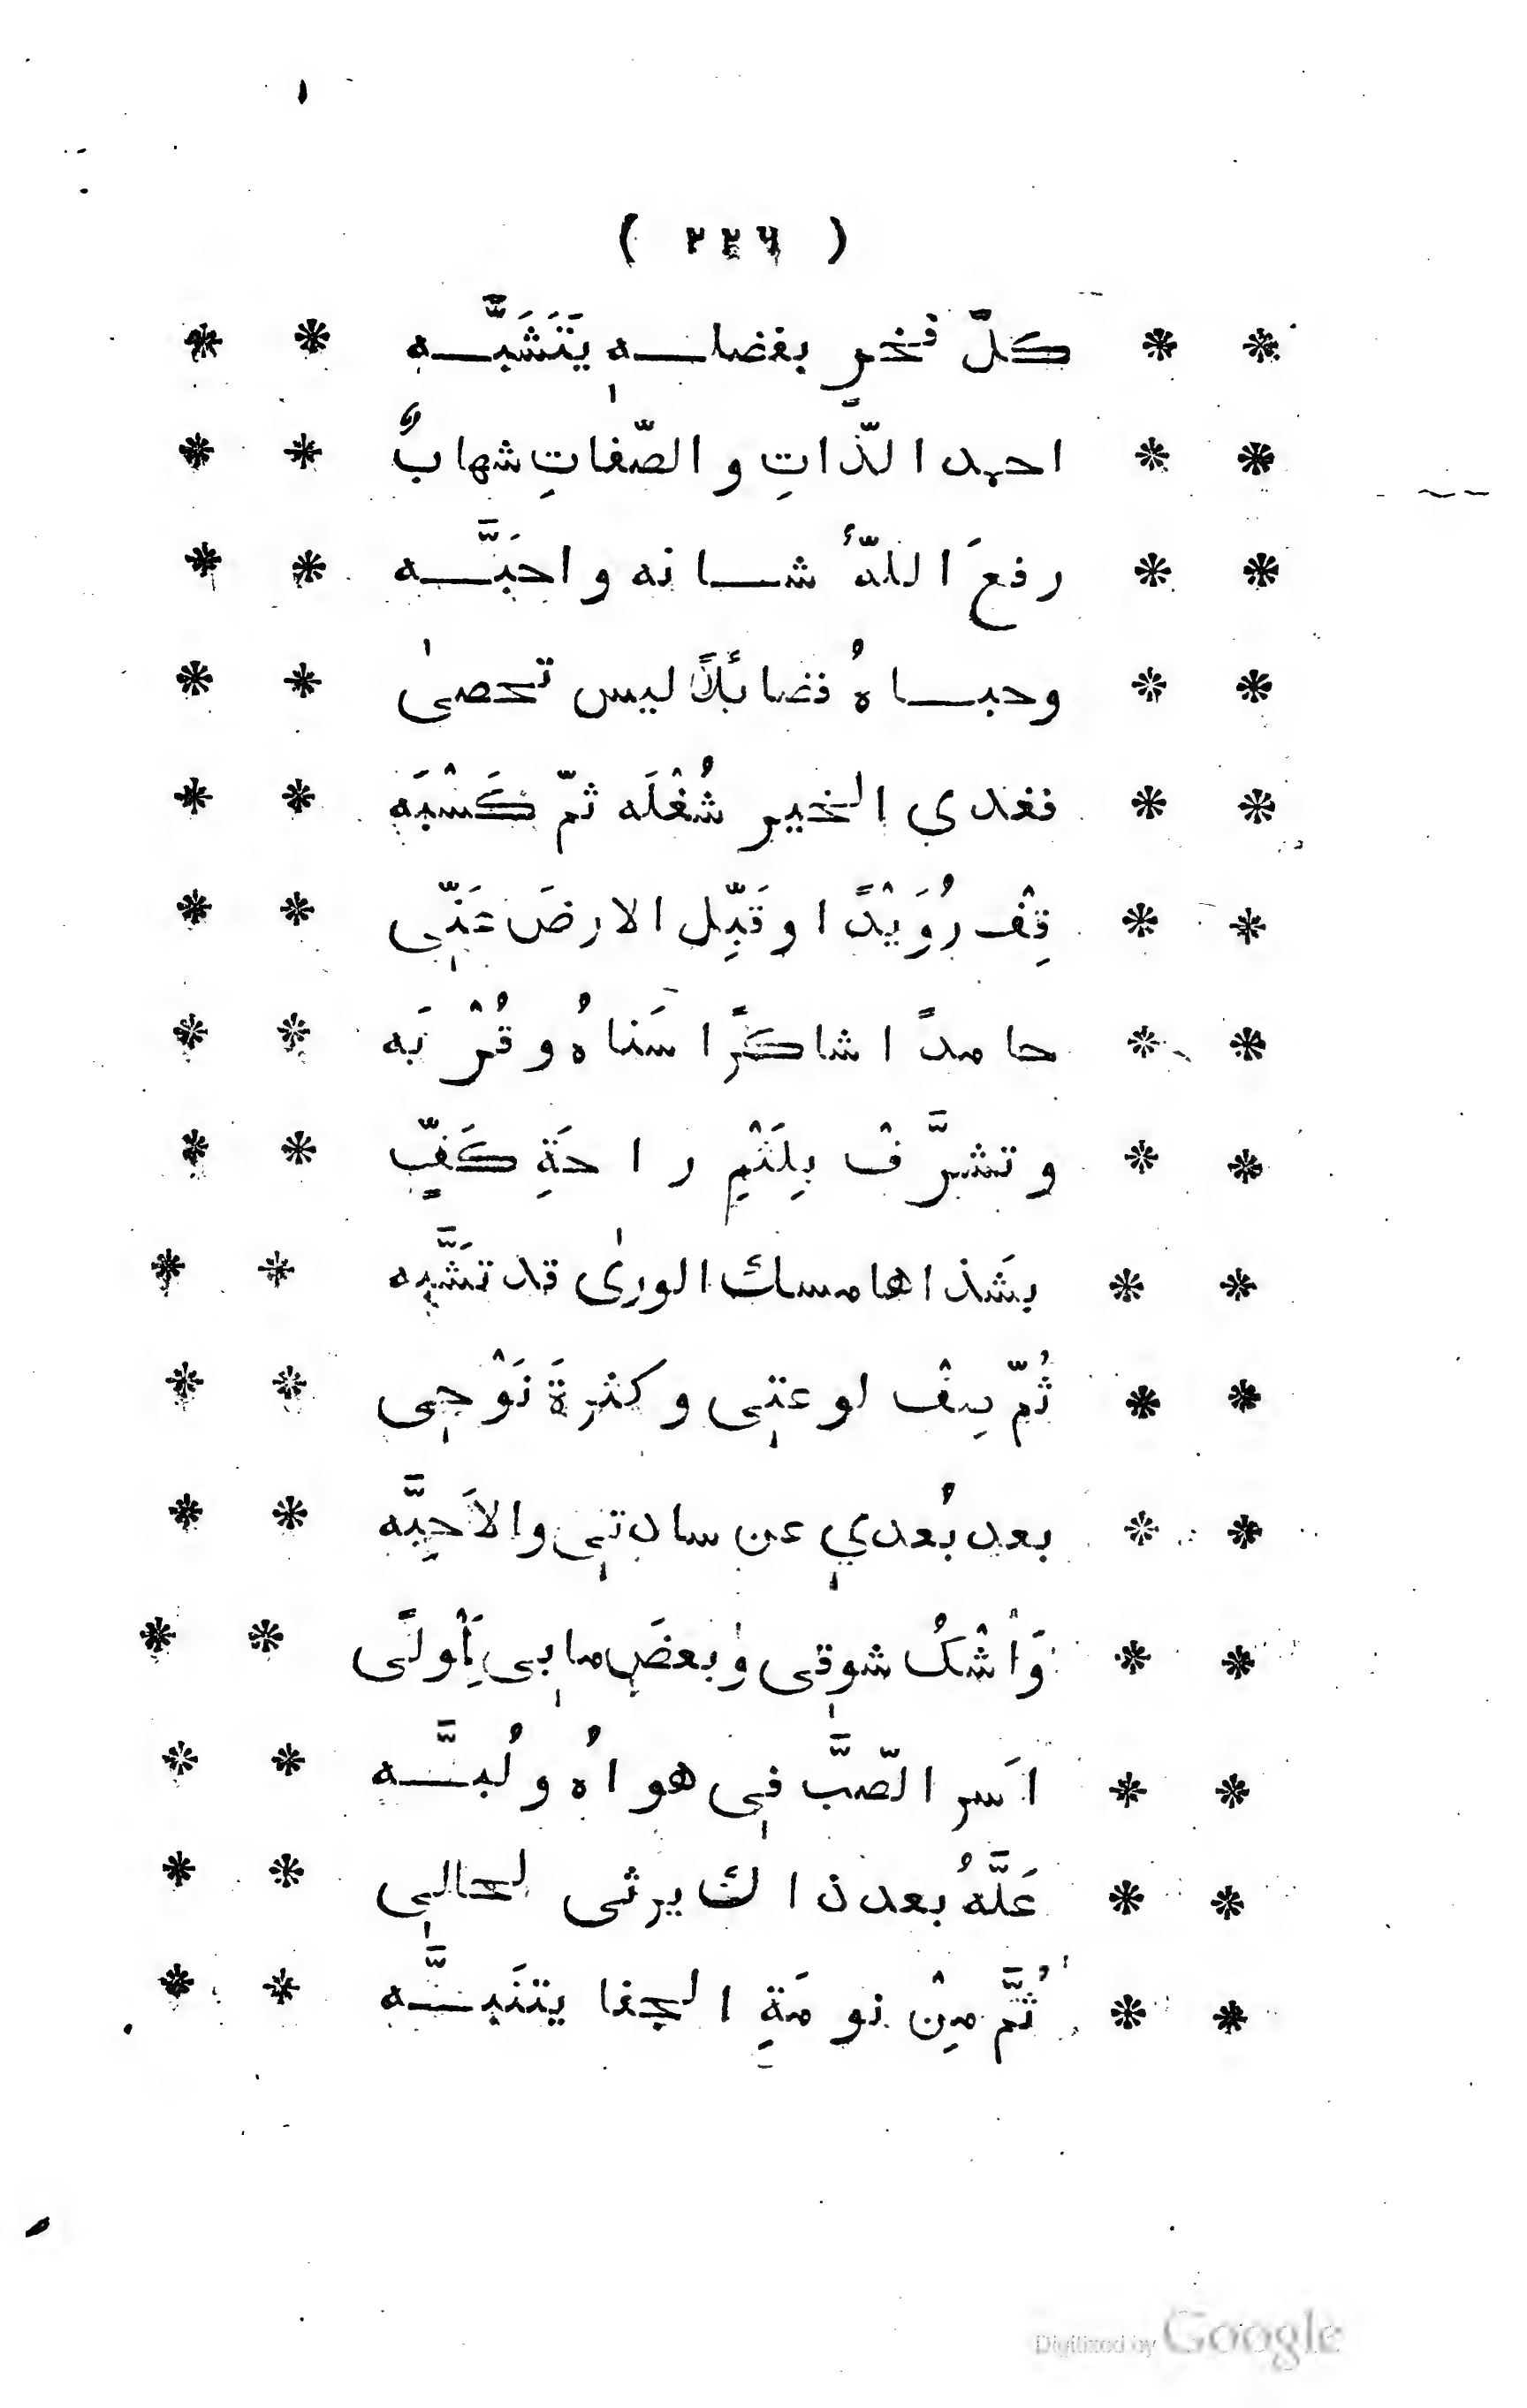 ( ٢٢٦ )
* * كلّ فخرٍ بفضلهٖ يَتَشَبَّه * *
* * احمد الذّاتِ والصّفاتِ شهابٌ * *
* * رفعَ اللّهُ شانه واحَبَّه * *
* * وحباهُ فضائلاً ليس تحصىٰ * *
* * فغدي الخير شُغْلَه ثمّ كَسْبَه * *
* * قِفْ رُوَيْدًا وقَبِّل الارضَ عَنّي * *
* * حامدًا شاكرًا سَناهُ وقُرْبَه * *
* * وتشرَّفْ بِلَثْمِ راحَةِ كَفٍّ * *
* * بشَذاها مسك الورىٰ قد تَشَبَّه * *
* * ثُمّ صِفْ لوعتي وكثرةَ نَوْحِي * *
* * بعد بُعدي عن سادتي والاَحِبَّه * *
* * وَاشْكُ شوقي وبعضَ مابي اَوْلَى * *
* * اَسر الصّبَّ في هواهُ ولُبَّه * *
* * عَلَّهُ بعد ذاك يرثى لحالي * *
* * ثُمَّ مِنْ نومَةِ الجفا يتنَبَّه * *
Digitized by Google